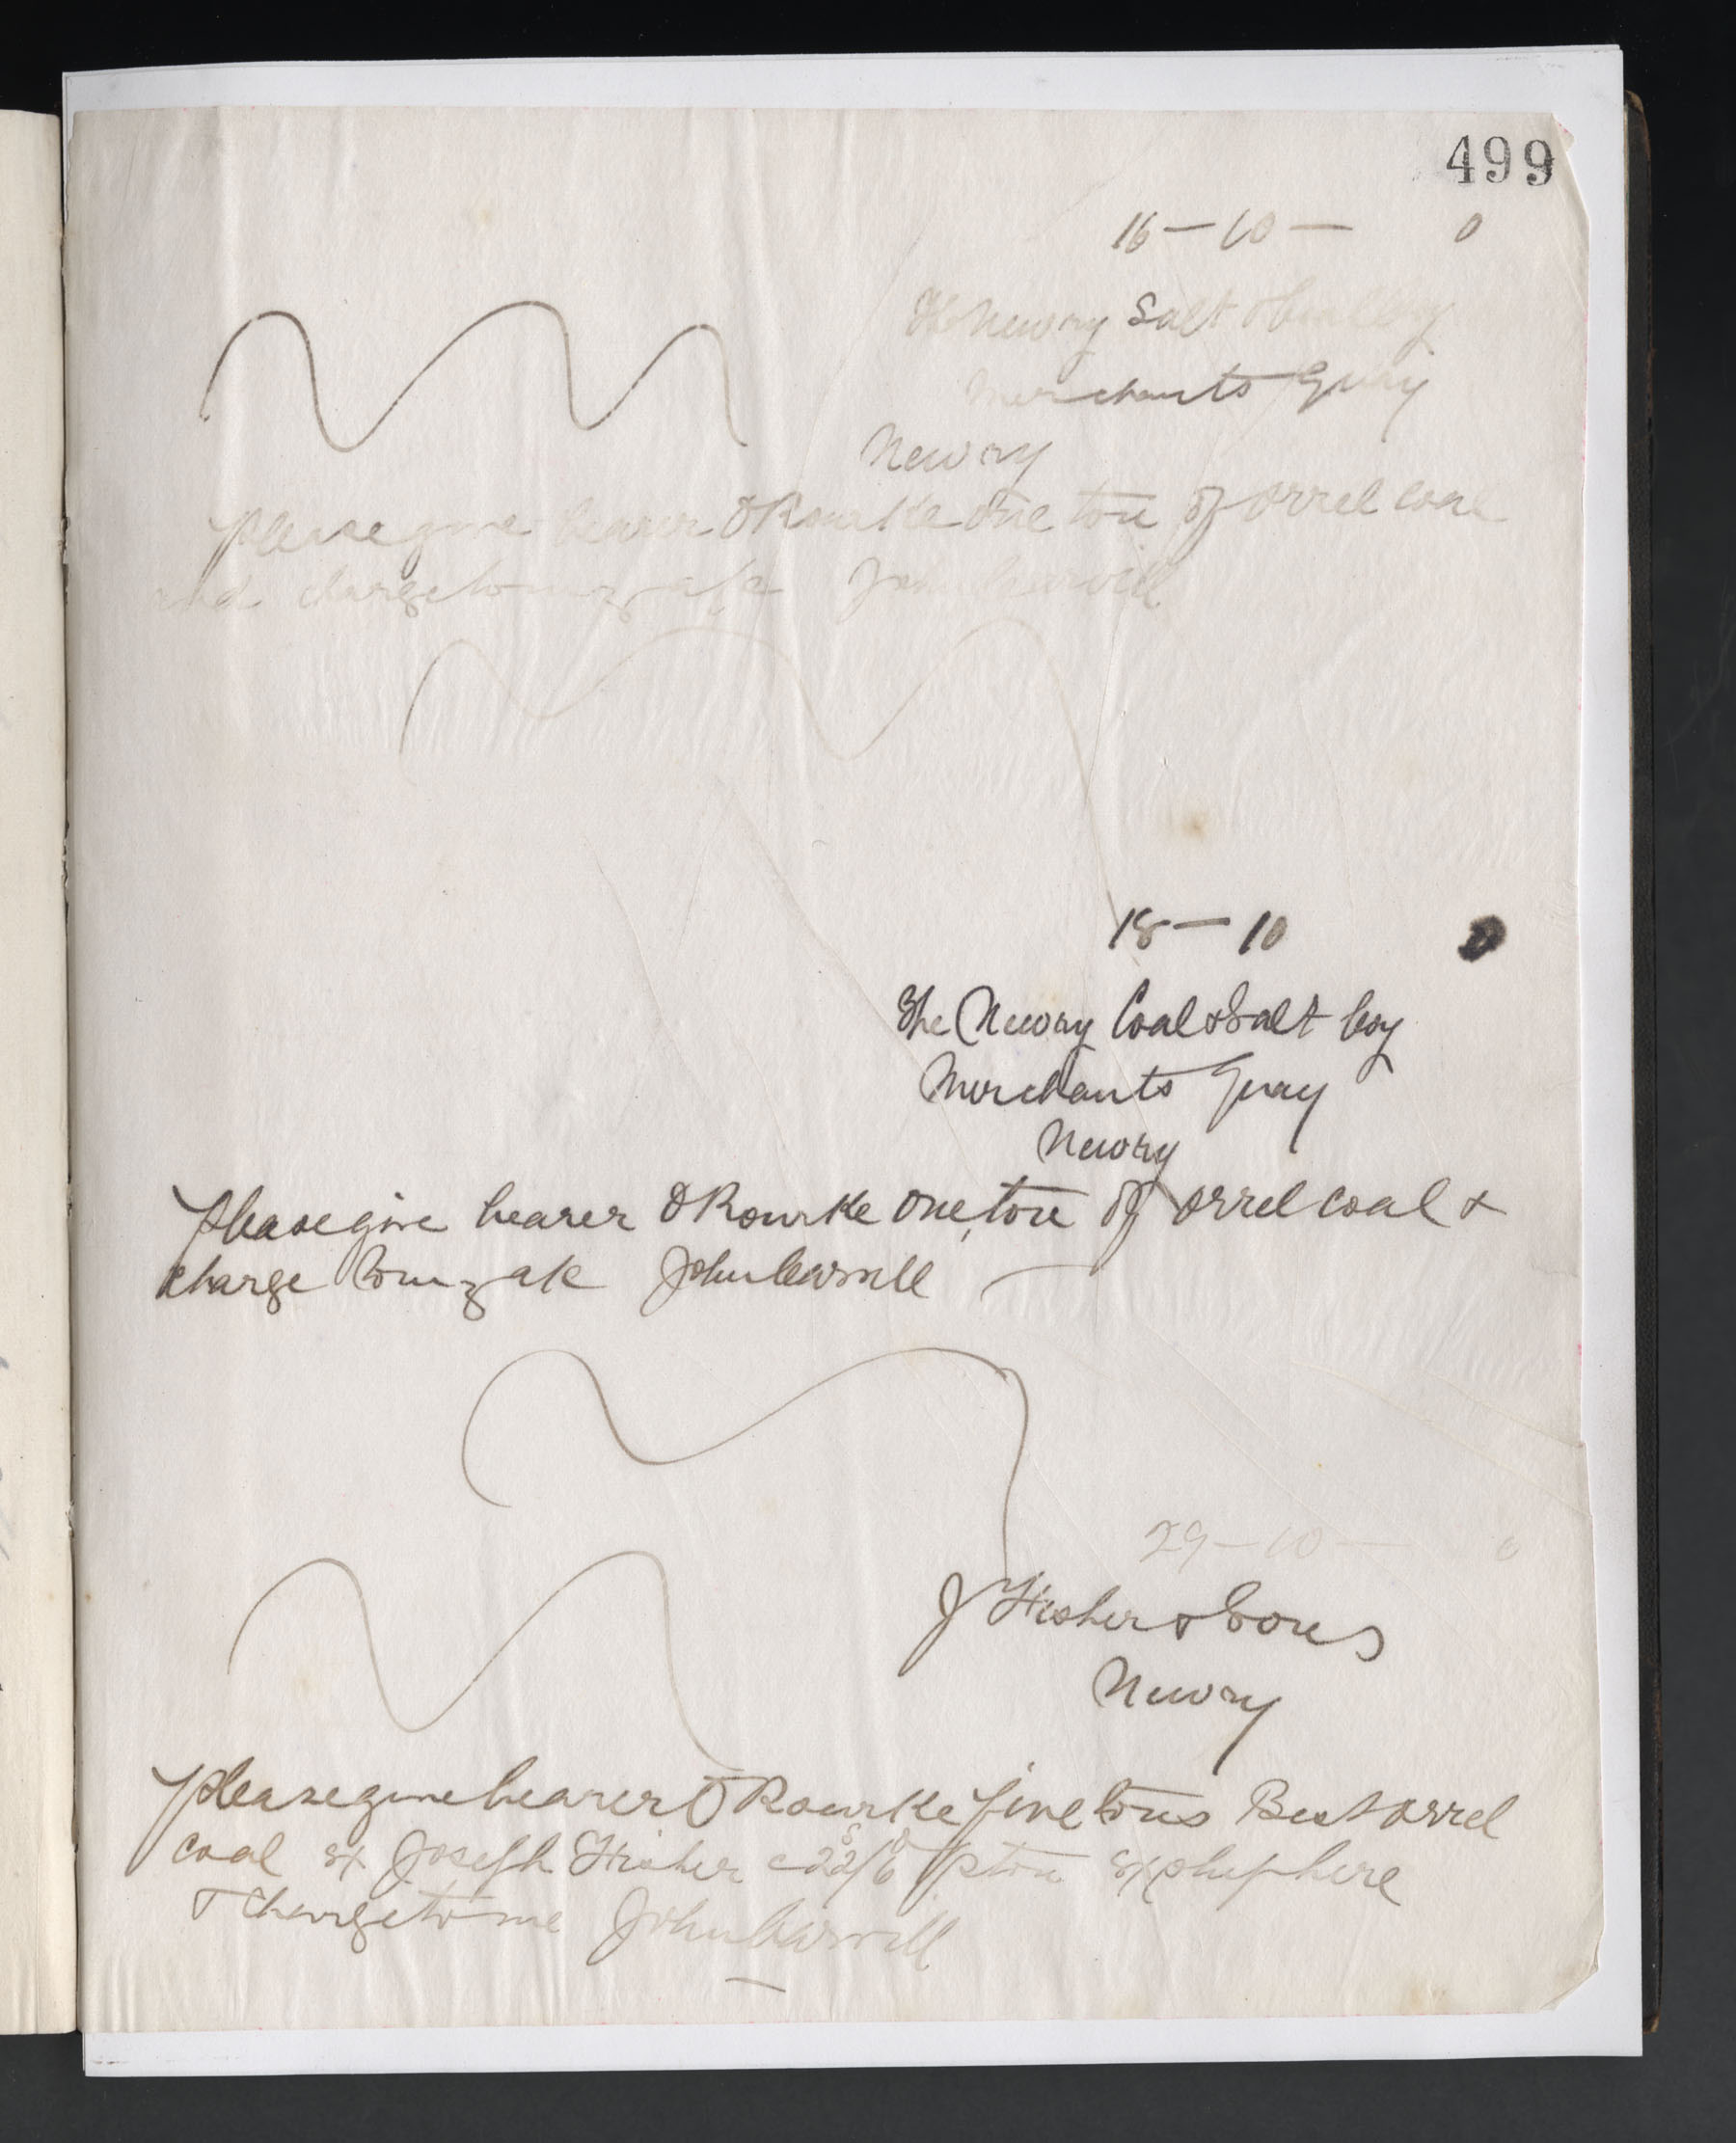 499
16 — 10 — 0
The Newry Salt & Coal Coy
Merchants Quay
Newry
Please give bearer O Rourke One ton of orrel coal
and charge to my a/c John Carvill
18 — 10 0
The Newry Coal & Salt Coy
Merchants Quay
Newry
Please give bearer O Rourke One ton of orrel coal &
charge to my a/c John Carvill
29 — 10 — 0
J Fisher & Sons
Newry
Please give bearer O Rourke five tons Best orrel
coal ex Joseph Fisher @ 22s/6d p ton ex ship here
& charge to me John Carvill